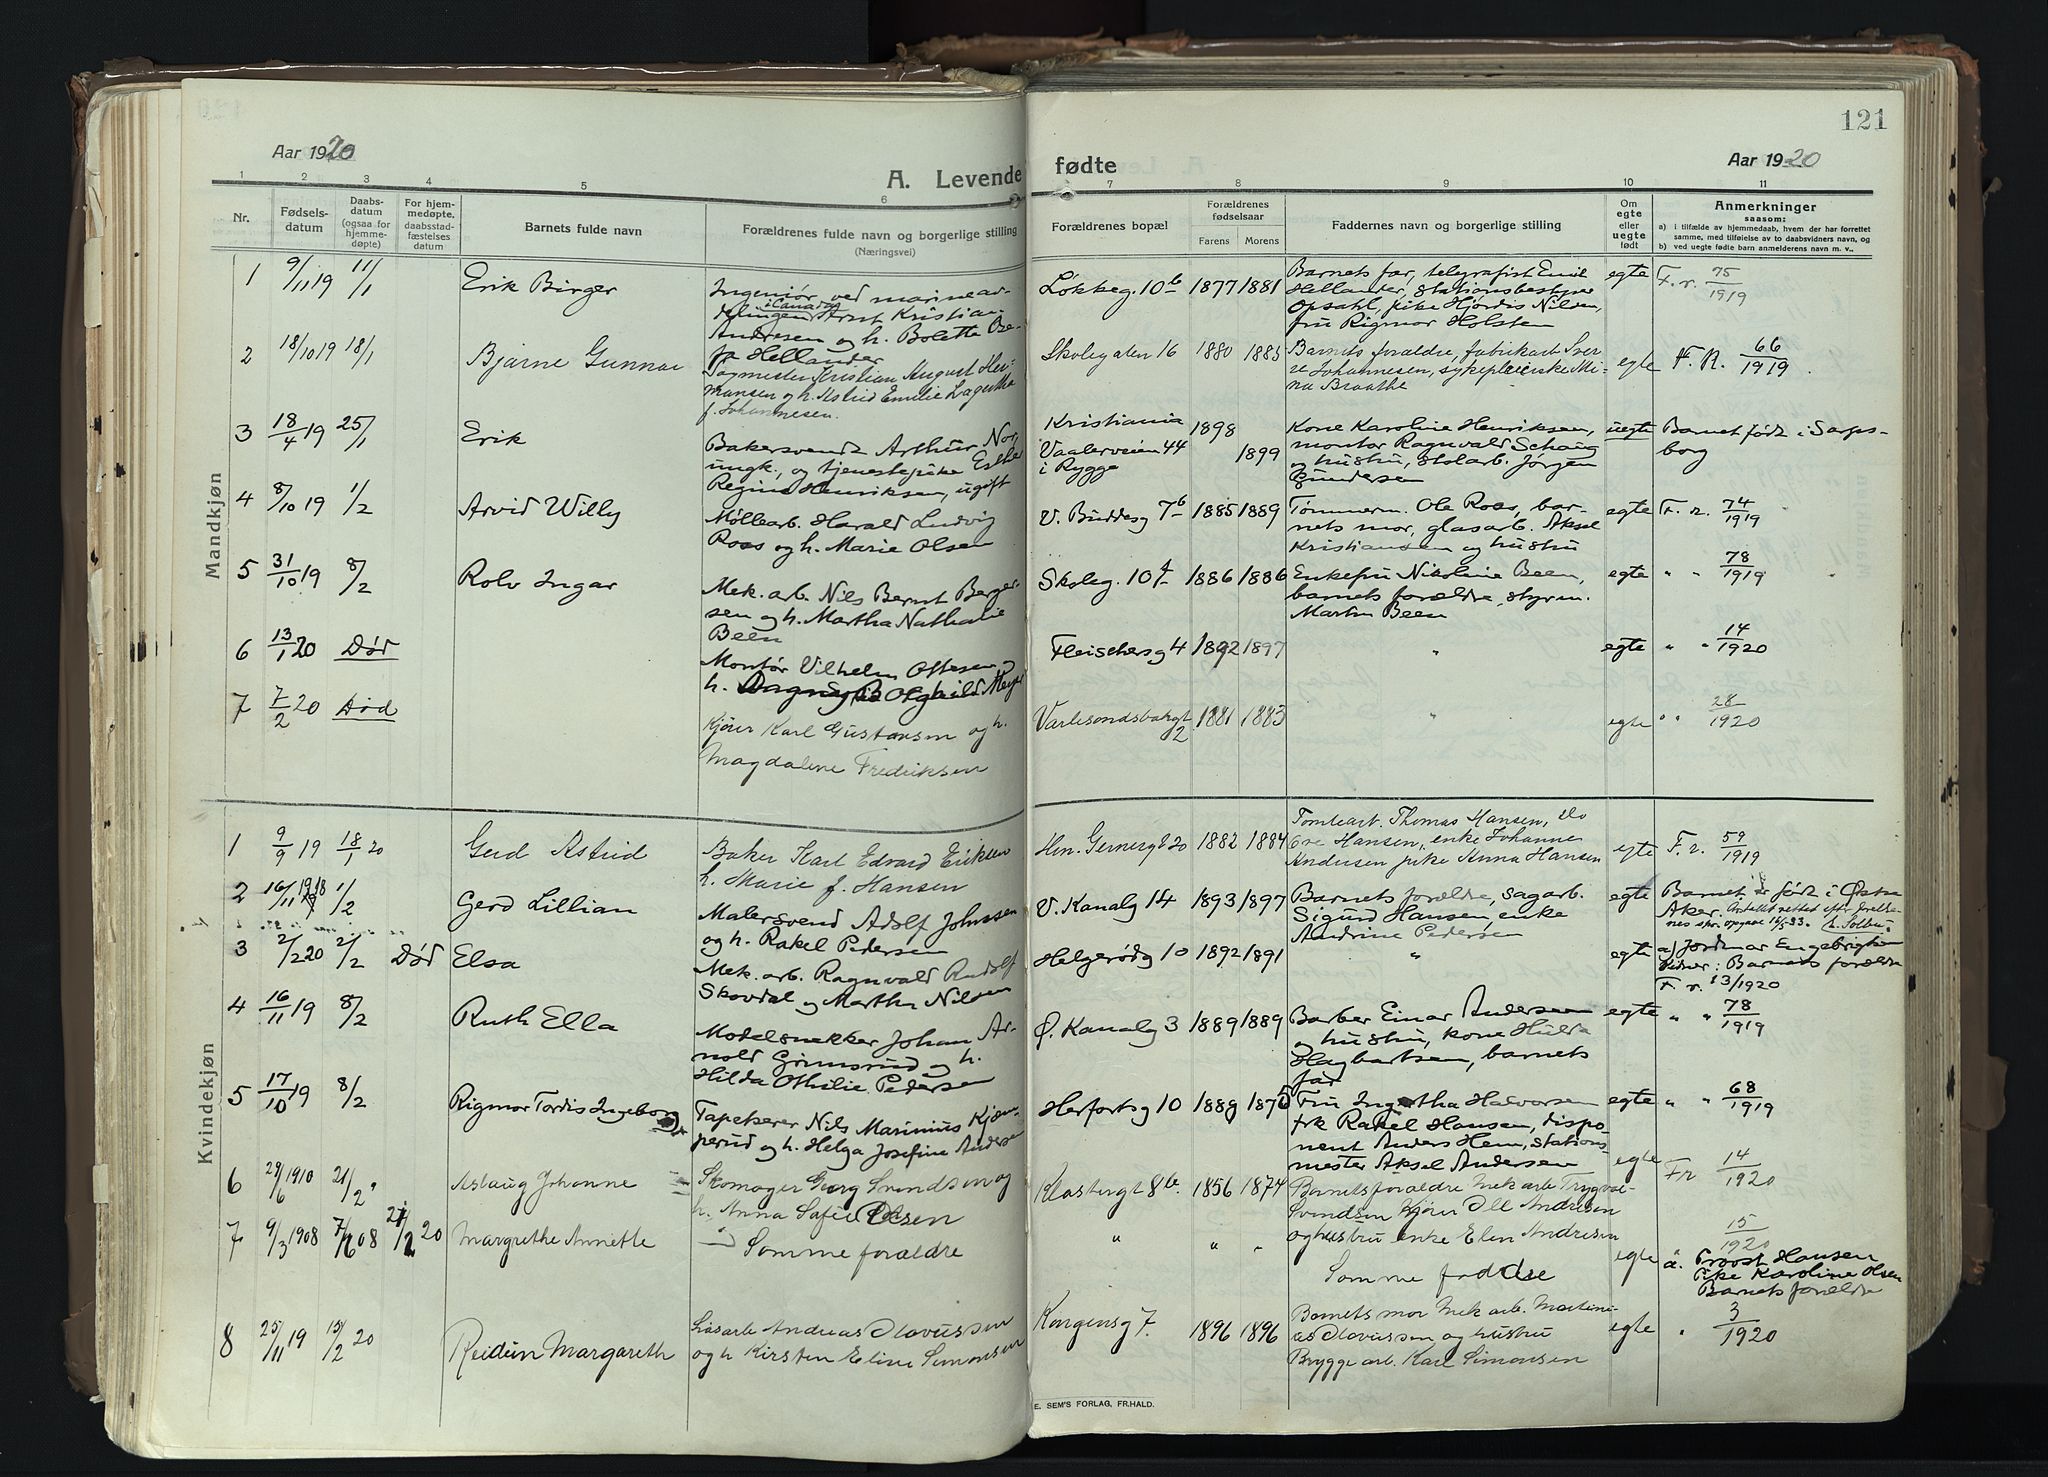 121
Aar 1920
A. Levende
fødte
Aar 1920
1 2 3 4 5 6 7 8 9 10 11
Nr.
Fødsels-
datum
Daabs-
datum
(ogsaa for
hjemme-
døpte)
For hjem-
medøpte,
daabsstad-
fæstelses
datum
Barnets fulde navn
Forældrenes fulde navn og borgerlige stilling
(Næringsvei)
Forældrenes bopæl
Forældrenes
fødselsaar
Farens Morens
Faddernes navn og borgerlige stilling
Om
egte
eller
uegte
født
Anmerkninger
saasom:
a) i tilfælde av hjemmedaab, hvem der har forrettet
samme, med tilføielse av to daabsvidners navn, og
b) ved uegte fødte barn anmelderens navn m. v.,
Mandkjøn
1 9/11 19 11/1 Erik Birger
Ingeniør ved marineav-
delingen i Canada Arnt Kristian
Andresen og h. Bolette
f. Hellander
Løkkeg. 10b 1877 1881
Barnets far, telegrafist Emil
Hellander, stationsbestyrer
Opsahl, pike Hjørdis Nilsen,
fru Rigmor Holsten
egte F. r. 75/1919
2 18/10 19 18/1 Bjarne Gunnar
Sagmester Kristian August Her-
mansen og h. Astrid Emilie Lagertha
f. Johannesen.
Skolegaten 16 1880 1885
Barnets forældre, fabrikarb Sver-
re Johannesen, sykepleierske Mi-
na Braathe
egte F. R. 66/1919.
3 18/4 19 25/1 Erik
Bakersvend Arthur Nor,
ungk., og tjenestepike Esther
Regine Henriksen, ugift
Kristiania
Vaalerveien 44
i Rygge
1898
1899
Kone Karoline Henriksen,
montør Ragnvald Schaug
og hustru, stolarb. Jørgen
Gundersen
uegte Barnet født i Sarps-
borg
4 8/10 19 1/2 Arvid Willy
Møllearb. Harald Ludvig
Roos og h. Marie Olsen
V. Buddesg 7b 1885 1889
Tømmerm. Ole Roos, bar-
nets mor, glasarb. Aksel
Kristiansen og hustru
egte F. r. 74/1919
5 31/10 19 8/2 Rolv Ingar
Mek. arb. Nils Bernt Berger-
sen og h. Martha Nathalie
Been
Skoleg. 10 1886 1886
Enkefru Nikoline Been,
barnets forældre, styrm.
Martin Been
egte " " 78/1919
6 13/1 20 Død
Montør Vilhelm Oftesen og
h. Olghild Meyer
Fleischersg 4 1892 1897 "
egte " " 14/1920
7 7/2 20 Død
Kjører Karl Gustavsen og h.
Magdalene Fredriksen
1881 1883 "
egte " " 28/1920
Kvindekjøn
1 9/9 19 18/1 20 Gerd Astrid
Baker Karl Edvard Eriksen
h. Marie f. Hansen
Hen. Gernersgt 20 1882 1884
Tomtearb. Thomas Hansen, do
Hansen, enke Johanne
Andersen pike Anna Hansen
egte F. r. 59/1919
2 16/11 1918 1/2 Gerd Lillian
Malersvend Adolf Johnsen
og h. Rakel Pedersen
V. Kanalg 14 1893 1897
Barnets forældre, sagarb.
Sigurd Hansen, enke
Andrine Pedersen
egte Barnet er født i Østre
Aker. Aarstallet rettet efter
3 2/2 20 2/2 Død Elsa
Mek. arb. Ragnvald Rudolf
Skovdal og Martha Nilsen
Helgerødg 10 1892 1891 "
egte a) Jordmor Engebrigtsen
Vidner: Barnets forældre
F. r. 13/1920
4 16/11 19 8/2 Ruth Ella
Modelsnekker Johan Ar-
nold Grimsrud og h.
Hilda Othilie Pedersen
Ø. Kanalg 3 1889 1889
Barber Einar Andersen
og hustru, kone Hulda
Hagbartsen, barnets
far
egte " " 78/1919
5 17/10 19 8/2 Rigmor Tordis Ingeborg
Tapetserer Nils Marinius Kjøn-
nerud og h. Helga Josefine Andersen
Herfortsg 10 1889 1875
Fru Ingertha Halvorsen
frk Rakel Hansen, dispo-
nent Anders Hem, stations-
mester Aksel Andersen
egte " " 68/1919
6 29/6 1910 21/2 " Aslaug Johanne
Skomager Georg Svendsen og
h. Anna Sofie Olsen
Klostergt 8b. 1856 1874
Barnets forældre Mek arb Trygve
Svendsen Kjører Oll Andresen
og hustru enke Elen Andresen
egte F r 14/1920
7 9/3 1908 7/6 08 21/2 20 Margrethe Annette
Somme forældre
" " "
Somme faddre
egte 15/1920
a. Provst Hansen
Pike Karoline Olsen
Barnets forældre
8 25/11 19 15/2 20 Reidun Margareth
Løsarb Andreas Olavussen
og h Kirsten Eline Simonsen
Kongensg 7. 1896 1896
Barnets mor Mek arb. Martini-
us Olavussen og hustru
Brygge arb. Karl Simonsen
egte " 3/1920
E. SEM'S FORLAG, FR.HALD.